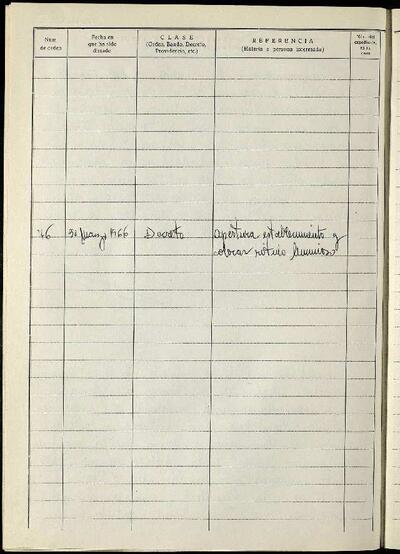 Núm. de orden
Fecha en que ha sido dictado
CLASE
(Orden, Bando, Decreto, Providencia, etc.)
REFERENCIA
(Materia o persona interesada)
Núm. del expediente, en su caso
46 Marzo 1966 Decreto apertura establecimiento y
colocar rótulo luminoso